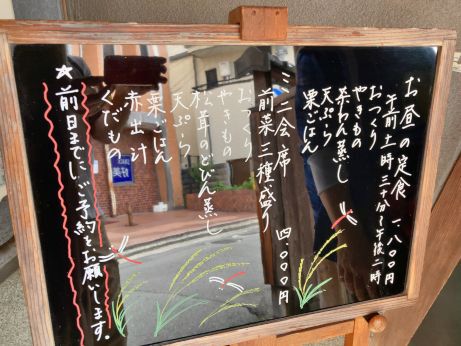 お昼の定食 一、八〇〇円
午前十一時三十分～午後二時
おつくり
やきもの
茶わん蒸し
天ぷら
栗ごはん
ミニ会席 四、〇〇〇円
前菜三種盛り
おつくり
やきもの
松茸のどびん蒸し
天ぷら
栗ごはん
赤出汁
くだもの
★前日までにご予約をお願いします。